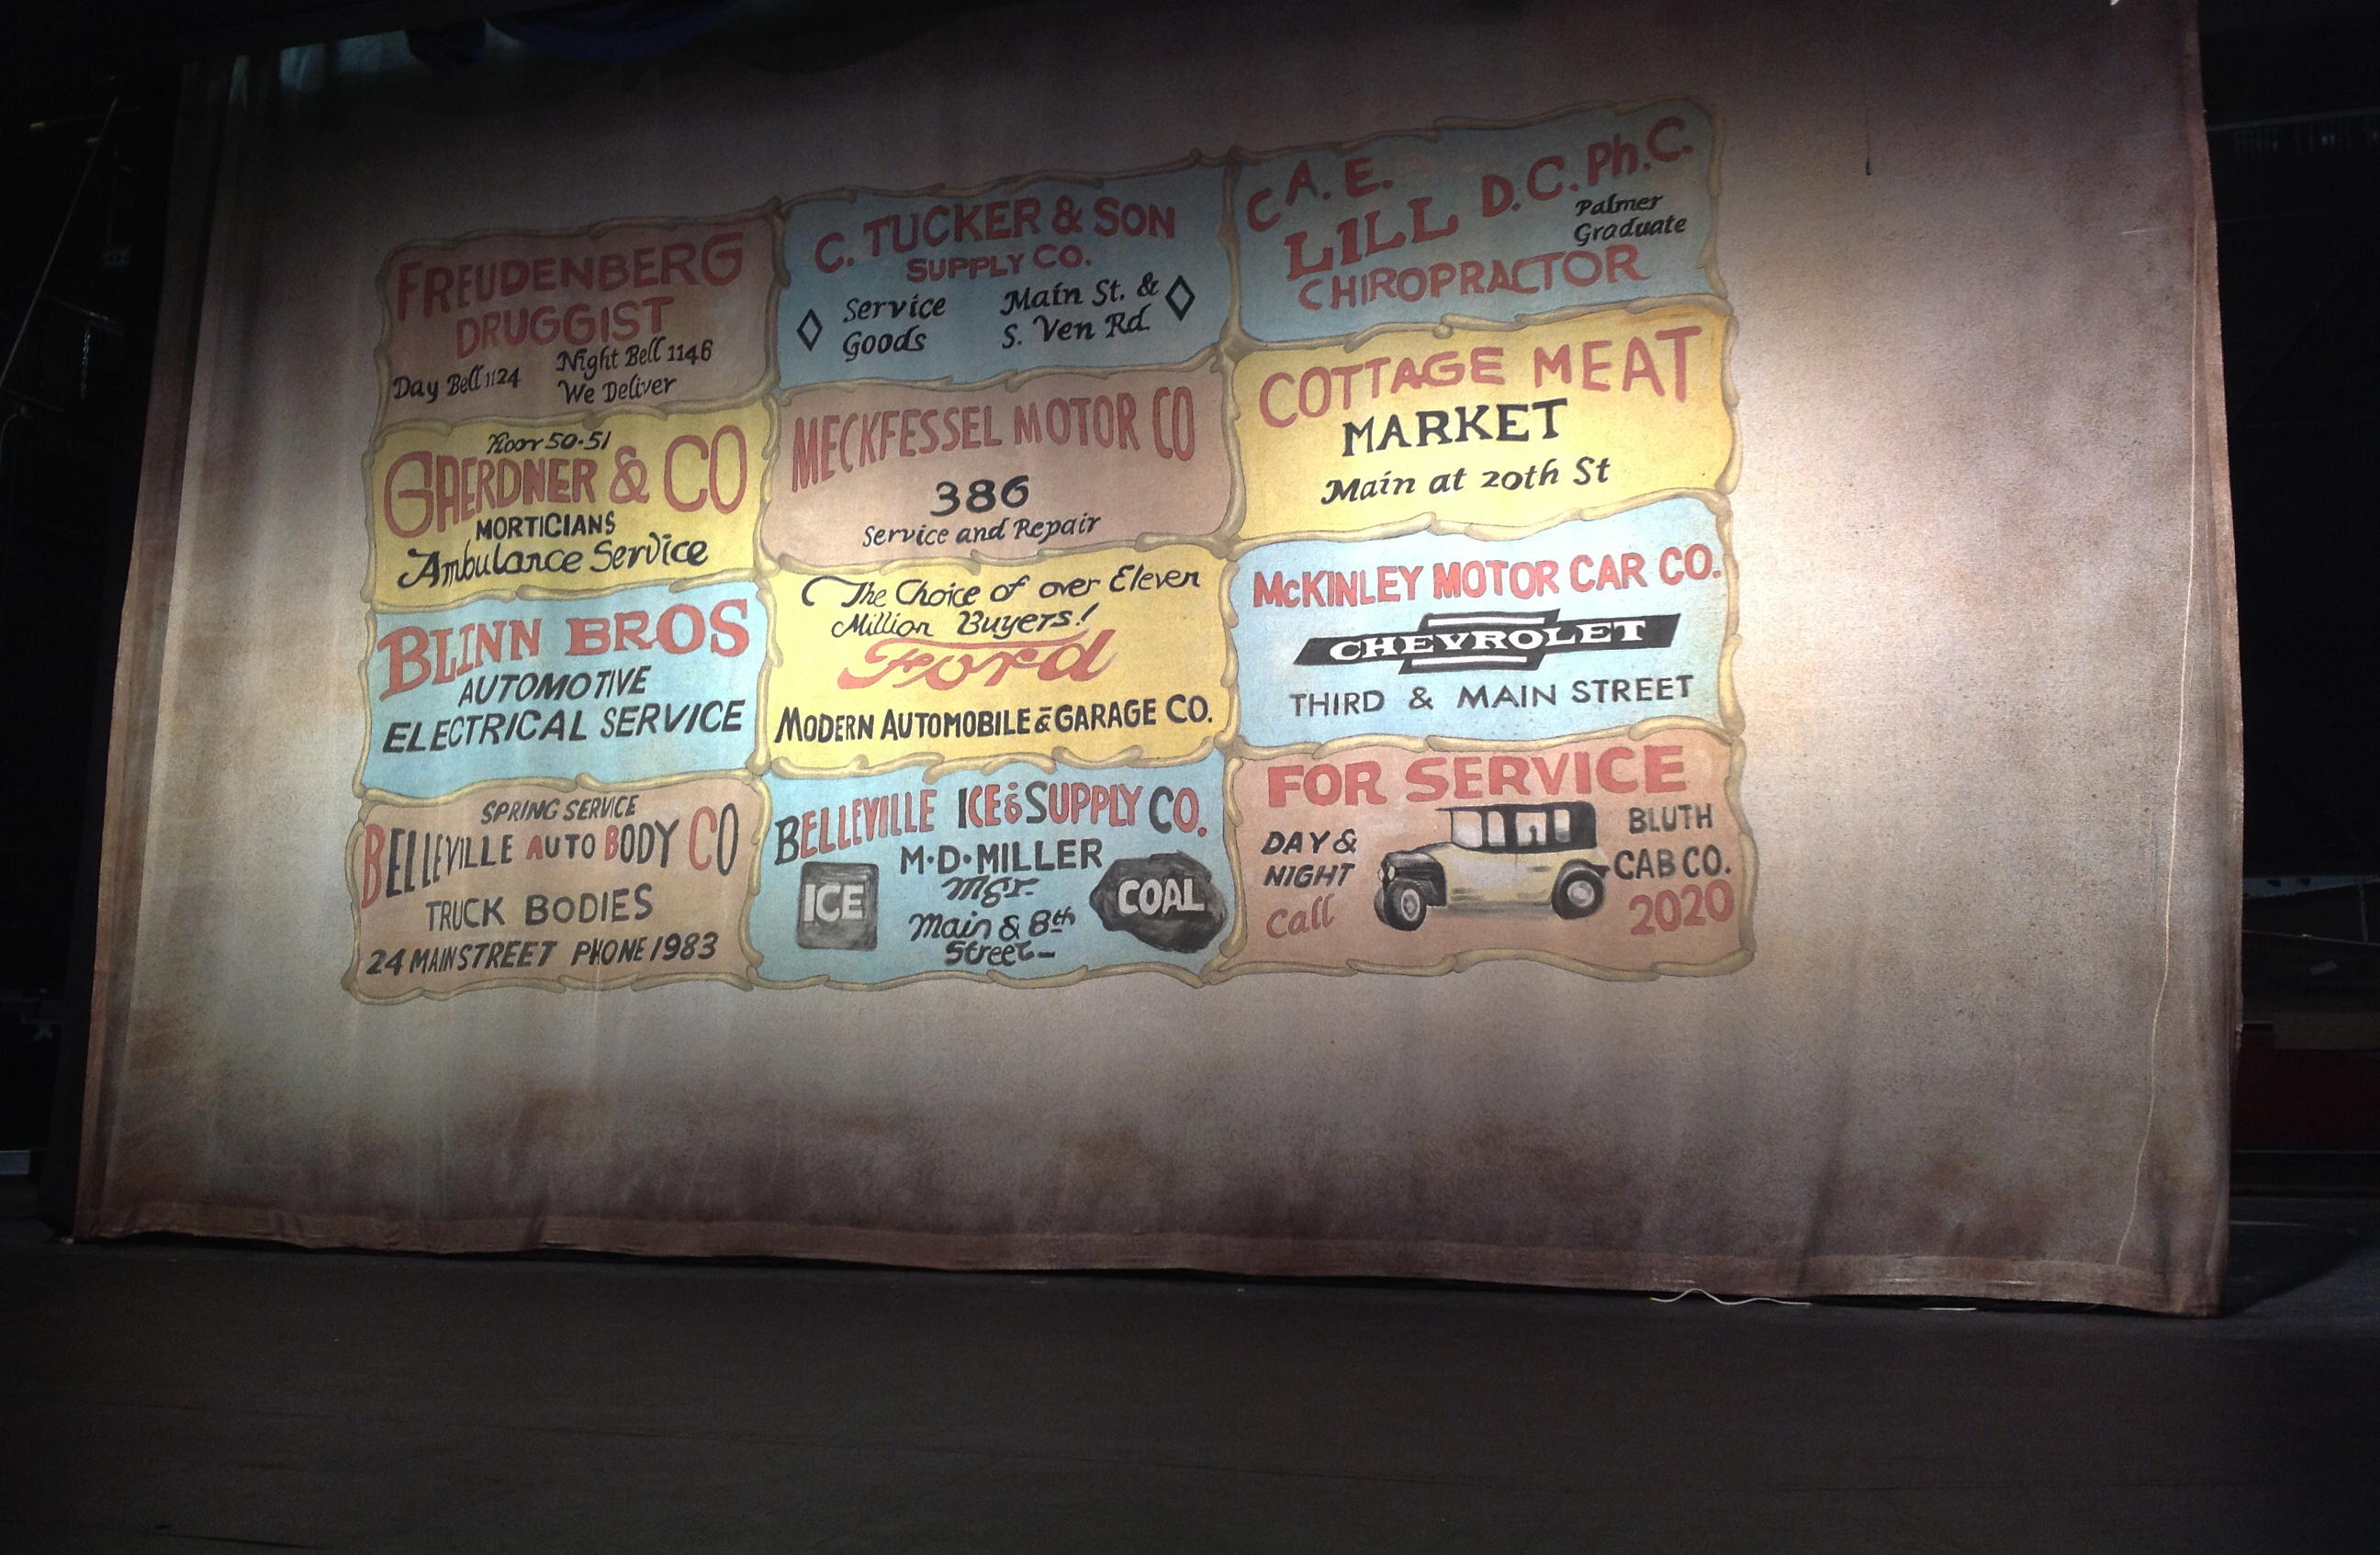 FREUDENBERG
DRUGGIST
Day Bell 1124
Night Bell 1146
We Deliver
C. TUCKER & SON
SUPPLY CO.
Service
Goods
Main St. &
S. Ven Rd.
C A. E.
LILL D.C. Ph.C.
Palmer
Graduate
CHIROPRACTOR
50-51
GAERDNER & CO
MORTICIANS
Ambulance Service
MECKFESSEL MOTOR CO
386
Service and Repair
COTTAGE MEAT
MARKET
Main at 20th St
BLINN BROS
AUTOMOTIVE
ELECTRICAL SERVICE
The Choice of over Eleven
Million Buyers!
Ford
MODERN AUTOMOBILE & GARAGE CO.
McKINLEY MOTOR CAR CO.
CHEVROLET
THIRD & MAIN STREET
SPRING SERVICE
BELLEVILLE AUTO BODY CO
TRUCK BODIES
24 MAIN STREET PHONE 1983
BELLEVILLE ICE & SUPPLY CO.
M·D·MILLER
Mgr.
ICE
COAL
Main & 8th
Street
FOR SERVICE
DAY &
NIGHT
Call
BLUTH
CAB CO.
2020